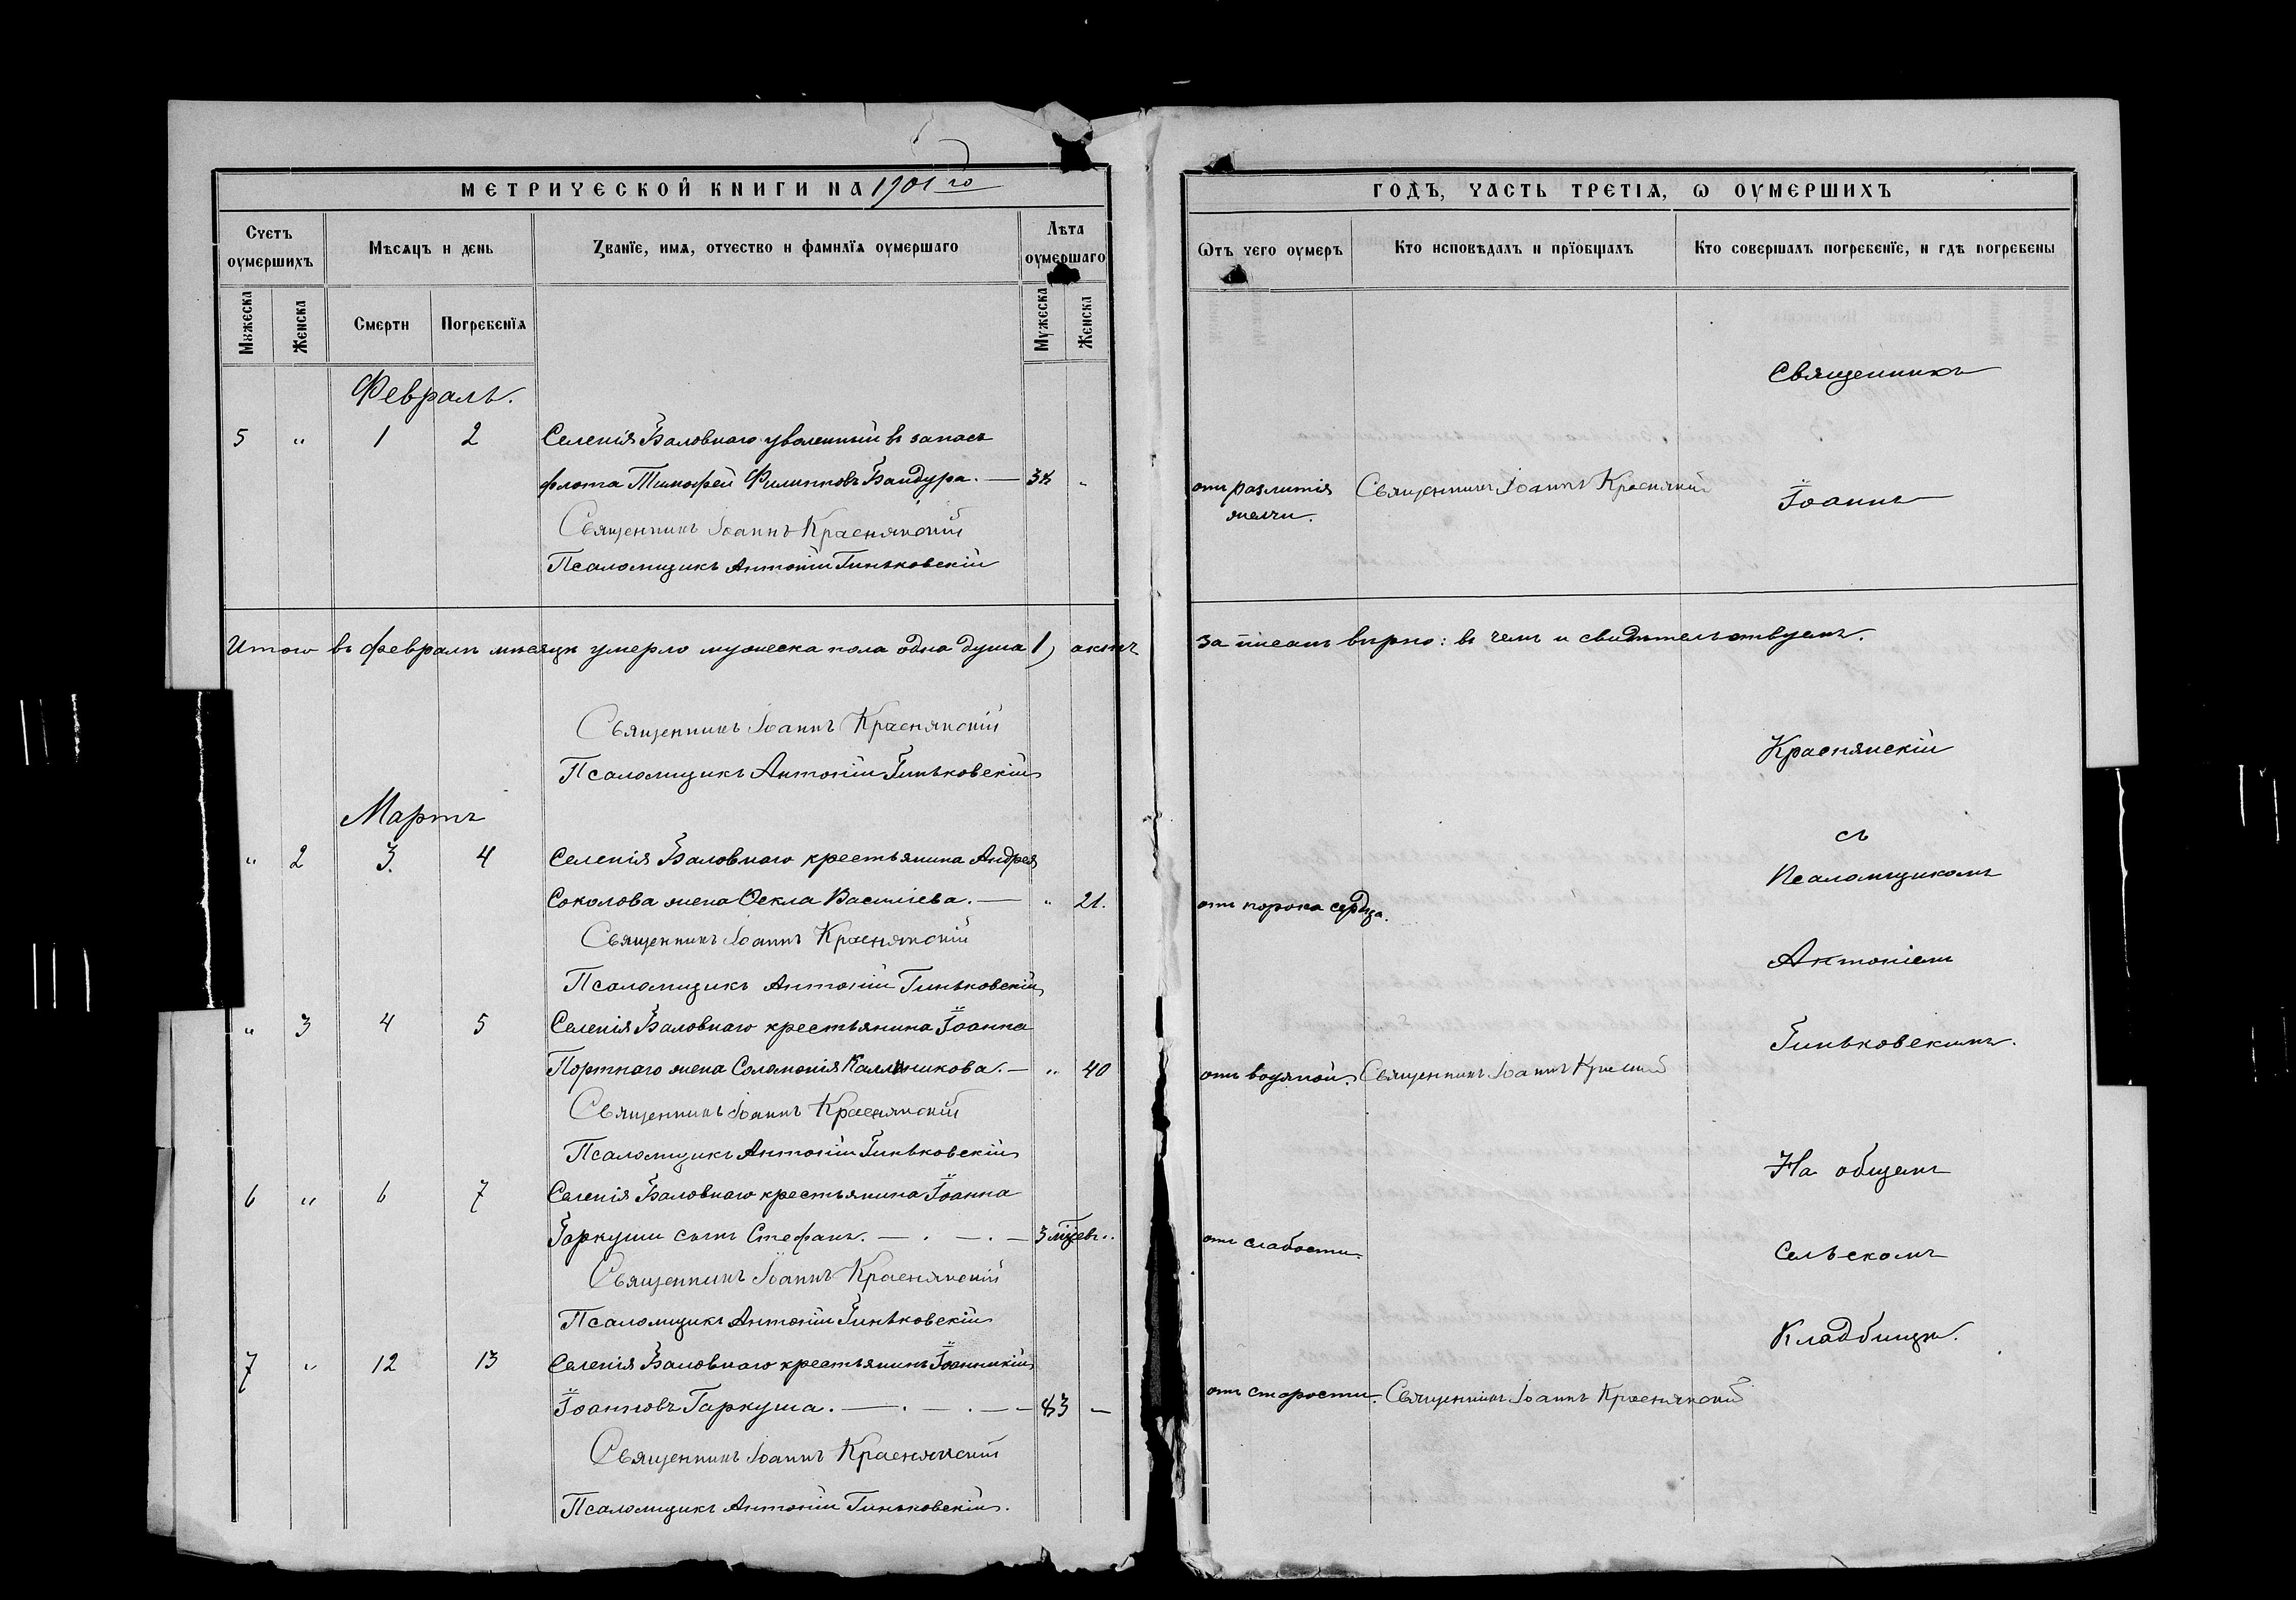 МЕТРИЧЕСКОЙ КНИГИ НА 1901 го
Счетъ оумершихъ
Мѣсяцъ и день
Званїе, имя, отчество и фамилїя оумершаго
Лѣта оумершаго
Мужеска
Женска
Смерти
Погребенїя
Мужеска
Женска
Февраль.
5 " 1 2 Селенія Баловнаго уволенный въ запасъ
флота Тимофей Филипповъ Бандура. — 38 "
Священникъ Іоаннъ Краснянскій
Псаломщикъ Антоній Гиньковскій
Итого въ февралѣ мѣсяцѣ умерло мужеска пола одна душа 1) актъ
Священникъ Іоаннъ Краснянскій
Псаломщикъ Антоній Гиньковскій
Мартъ
" 2 3. 4 Селенія Баловнаго крестьянина Андрея
Соколова жена Ѳекла Василіева. — " 21.
Священникъ Іоаннъ Краснянскій
Псаломщикъ Антоній Гиньковскій
" 3 4 5 Селенія Баловнаго крестьянина Іоанна
Портнаго жена Соломонія Каллиникова. — " 40
Священникъ Іоаннъ Краснянскій
Псаломщикъ Антоній Гиньковскій
6 " 6 7 Селенія Баловнаго крестьянина Іоанна
Гаркуши сынъ Стефанъ. — . — . — 3 мцев. "
Священникъ Іоаннъ Краснянскій
Псаломщикъ Антоній Гиньковскій
7 " 12 13 Селенія Баловнаго крестьянинъ Іоанникій
Іоанновъ Гаркуша. — . — . — — 83 —
Священникъ Іоаннъ Краснянскій
Псаломщикъ Антоній Гиньковскій.
ГОДЪ, ЧАСТЬ ТРЕТІЯ, Ѡ ОУМЕРШИХЪ
Ѿтъ чего оумеръ
Кто исповѣдалъ и прїобщалъ
Кто совершалъ погребенїе, и гдѣ погребены
Священникъ
отъ разлитія Священникъ Іоаннъ Краснянскій
желчи.
Іоаннъ
записанъ вѣрно: въ чемъ и свидѣтельствуемъ.
Краснянскій
съ
Псаломщикомъ
отъ порока сердца.
Антоніемъ
Гиньковскимъ.
отъ водяной. Священникъ Іоаннъ
На общемъ
отъ слабости.
Сельскомъ
Кладбищѣ.
отъ старости. Священникъ Іоаннъ Краснянскій